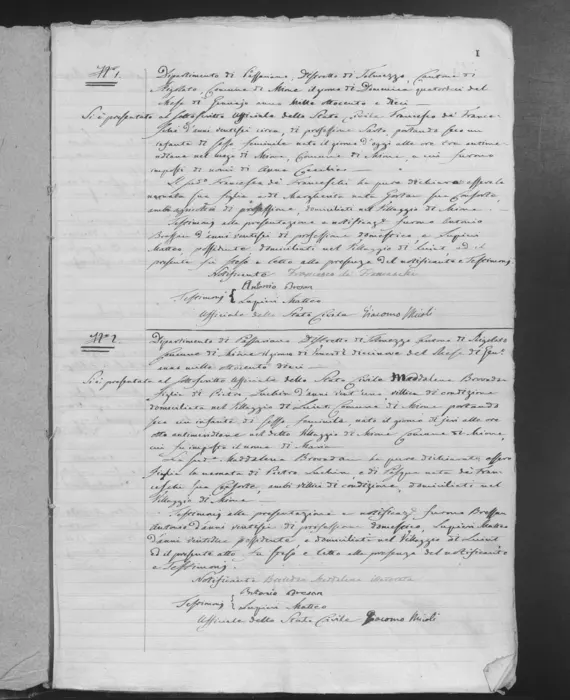 1
N.º 1.
Dipartimento di Passariano, Distretto di Tolmezzo, Cantone di
Rigolato, Comune di Mione il giorno di Domenica quatordici del
Mese di Genajo anno mille ottocento e dieci
Si è presentato al sottoscritto Ufficiale dello Stato Civile Francesco de' France-
schi d'anni ventisei circa, di professione Sarto, portando seco un
infante di sesso feminile nato il giorno d'oggi alle ore antime-
ridiane nel di Mione, Comune di Mione, a cui furono
imposti di nomi di Anna
Il sud.º Francesco de' Franceschi ha pure dichiarato essere la
neonata sua figlia, e di Margherita nata sua Consorte,
ambi di professione, domiciliati nel Villaggio di Mione
Testimonj alla presentazione e notifica furono Antonio
d'anni ventisei di professione domestico, e Lupieri
Matteo possidente domiciliati nel Villaggio di Luint, ed il
presente fu steso e letto alla presenza del notificante e Testimonj.
Notificante Francesco di Franceschi
Testimonj { Antonio
Lupieri Matteo
Ufficiale dello Stato Civile Giacomo Micoli
N.º 2.
Dipartimento di Passariano Distretto di Tolmezzo Cantone di Rigolato
Comune di Mione il giorno di decinove del Mese di Gen.º
anno mille ottocento dieci
Si è presentato al sottoscritto Ufficiale dello Stato Civile Maddalena
di Pietro d'anni villica di condizione
domiciliata nel Villaggio di Luint Comune di Mione portando
seco un infante di sesso feminile, nato il giorno di jeri alle ore
otto antimeridiane nel detto Villaggio di Mione Comune di Mione,
cui fu imposto il nome di Maria
La sud.ª Maddalena ha pure dichiarato essere
figlia la neonata di Pietro e di nata de' Fran-
ceschi sua Consorte, ambi villici di condizione, domiciliati nel
Villaggio di Mione
Testimonj alla presentazione e notifica furono
Antonio d'anni ventisei di professione domestico, Lupieri Matteo
d'anni possidente e domiciliati nel Villaggio di Luint
ed il presente atto fu steso e letto alla presenza del notificante
e Testimonj.
Notificante Maddalena
Testimonj { Antonio
Lupieri Matteo
Ufficiale dello Stato Civile Giacomo Micoli